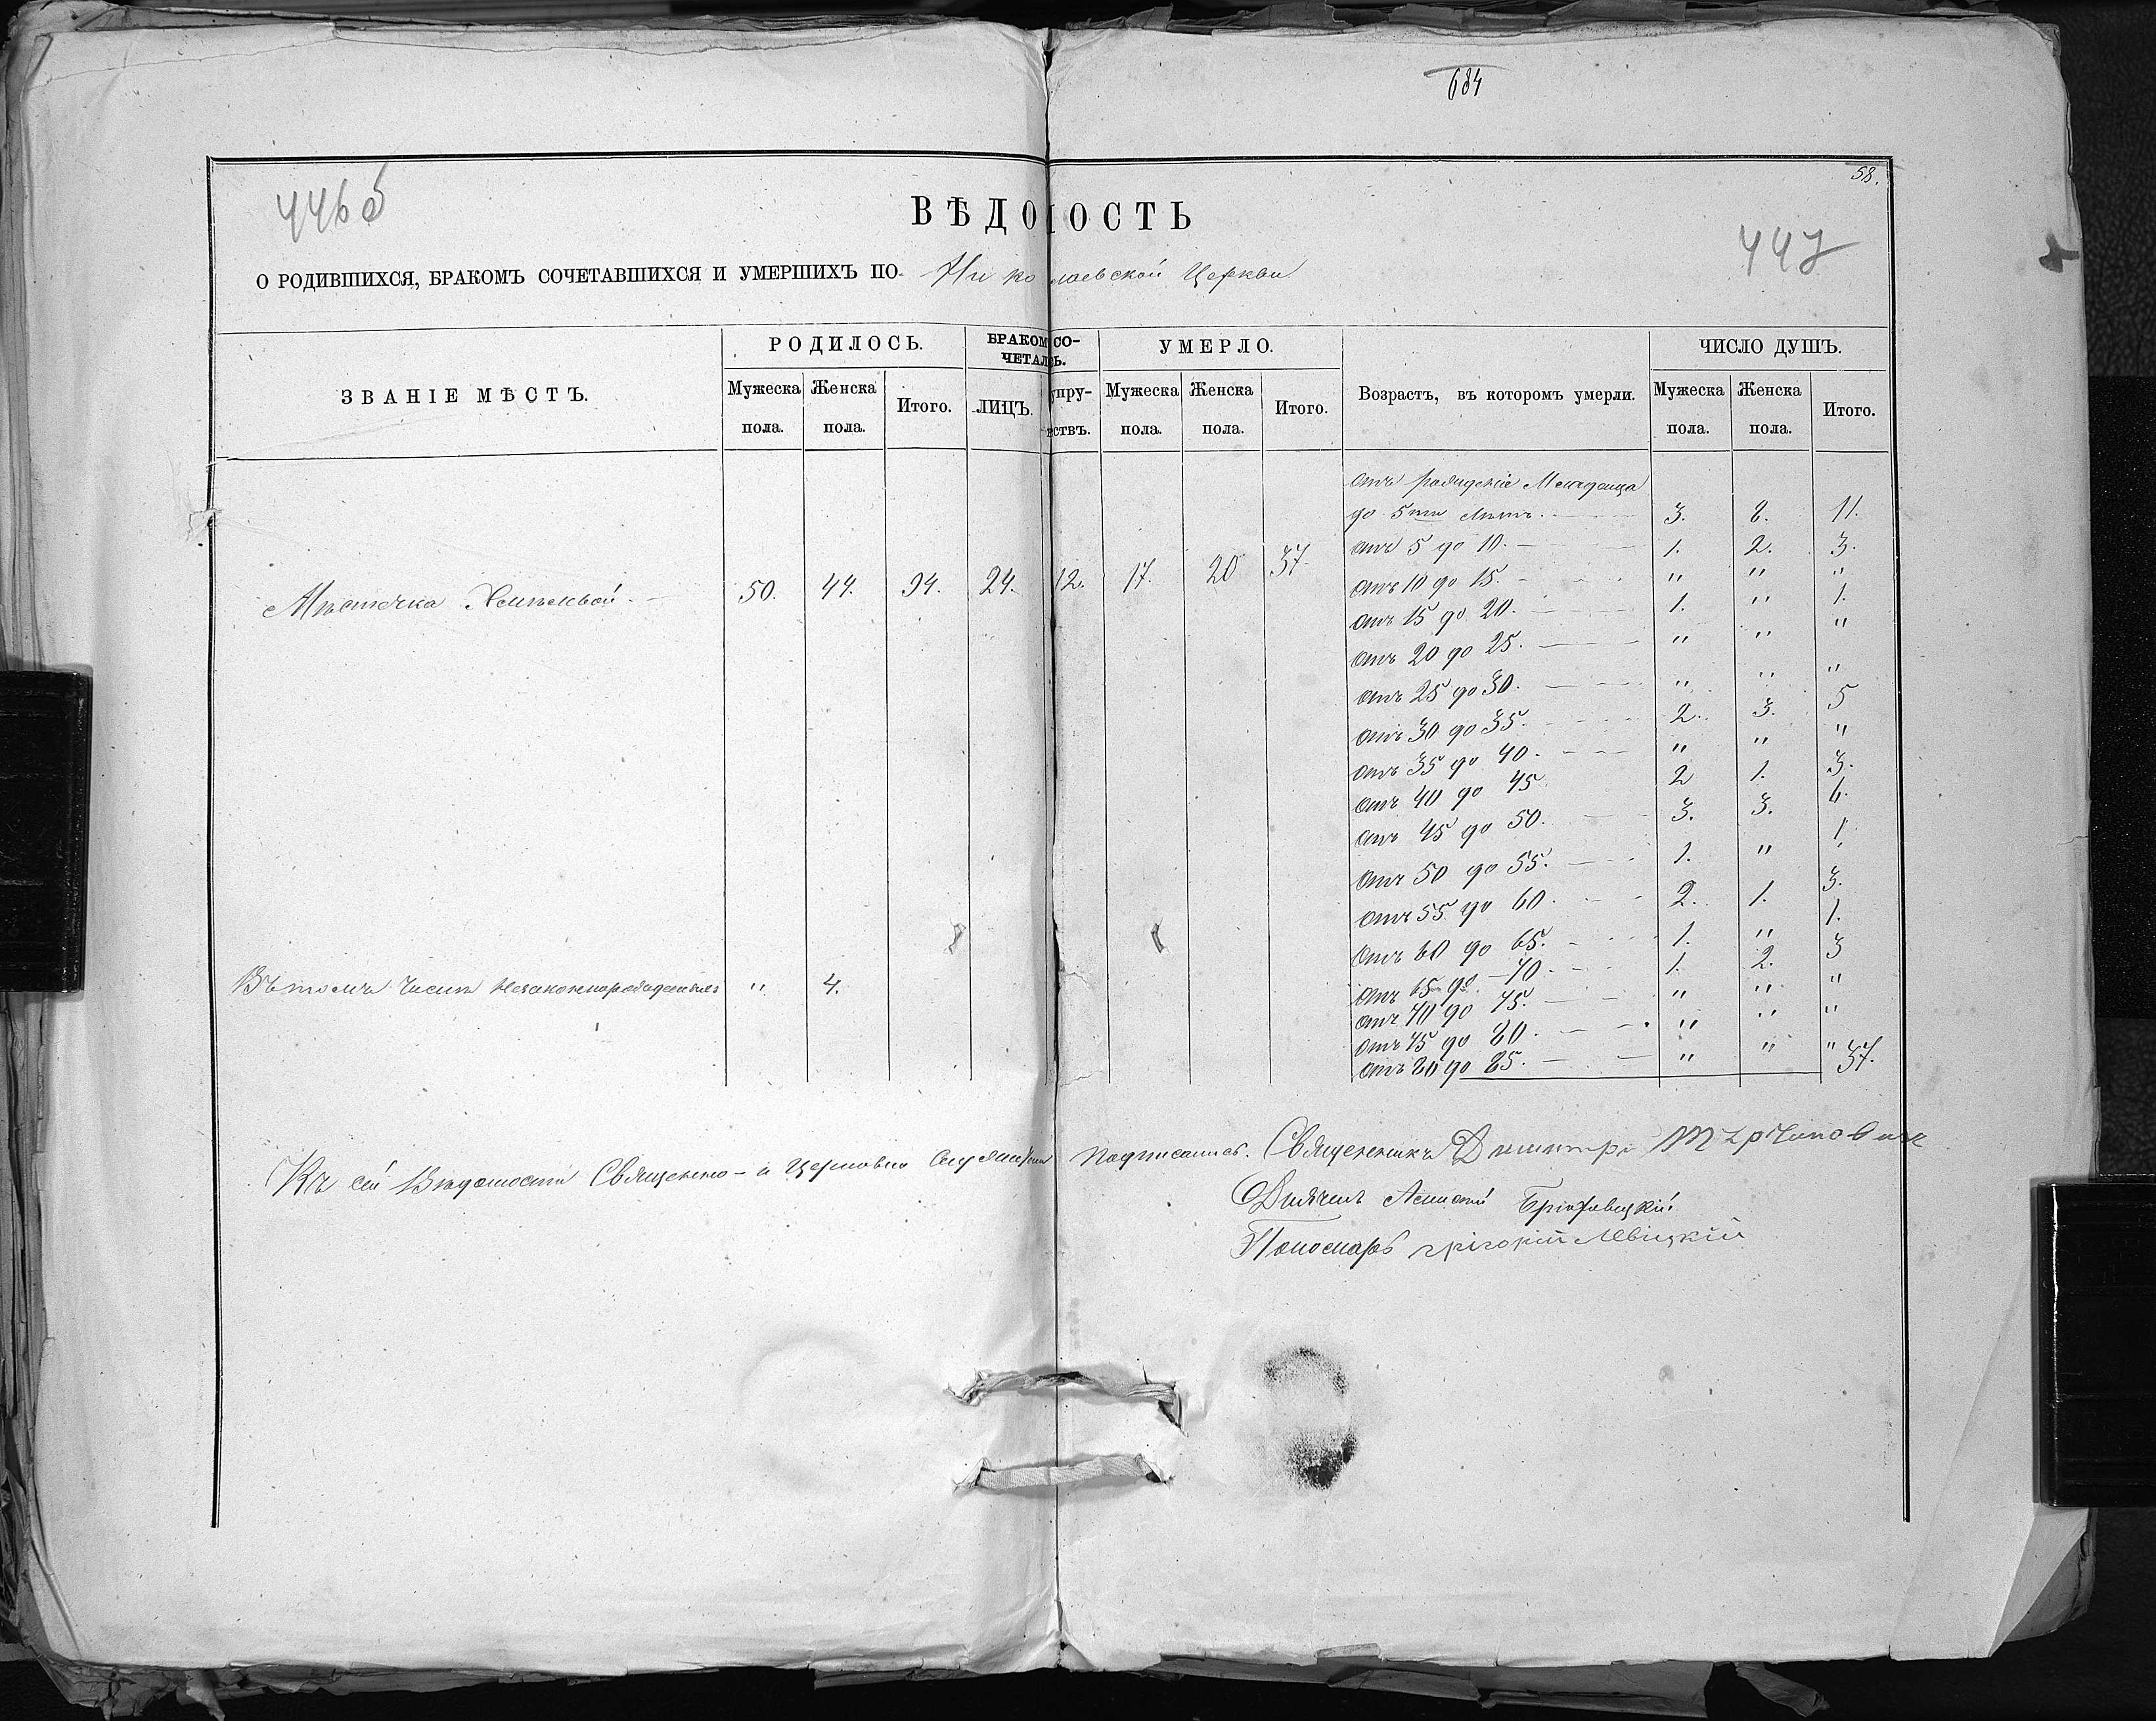 684
58.
446 б
447
ВѢДОМОСТЬ
О РОДИВШИХСЯ, БРАКОМЪ СОЧЕТАВШИХСЯ И УМЕРШИХЪ ПО Николаевской Церкви
ЗВАНІЕ МѢСТЪ. РОДИЛОСЬ. БРАКОМ СО- УМЕРЛО. Возрастъ, въ которомъ умерли. ЧИСЛО ДУШЪ.
ЧЕТАЛ Ь.
Мужеска Женска Итого. ЛИЦЪ. упру- Мужеска Женска Итого. Мужеска Женска Итого.
пола. пола. ствъ. пола. пола. пола. пола.
отъ рожденія Младенца
до 5ти лѣтъ. 3. 8. 11.
отъ 5 до 10. 1. 2. 3.
Мѣстечка 50. 44. 94. 24. 12. 17. 20 37.
отъ 10 до 15. " " "
отъ 15 до 20. 1. " 1.
отъ 20 до 25. " " "
отъ 25 до 30. " " "
отъ 30 до 35. 2. 3. 5
отъ 35 до 40. " " "
отъ 40 до 45 2 1. 3.
отъ 45 до 50. 3. 3. 6.
отъ 50 до 55. 1. " 1.
отъ 55 до 60. 2. 1. 3.
отъ 60 до 65. 1. " 1.
отъ 65 до 70. 1. 2. 3
Въ томъ числѣ незаконнорожденныхъ " 4.
отъ 70 до 75. " " "
отъ 75 до 80. " " "
отъ 80 до 85. " " "
37.
Къ сей Вѣдомости Священно- и Церковно служители подписались. Священникъ Димитрій
Дьячекъ
Пономарь Григорій Левицкій